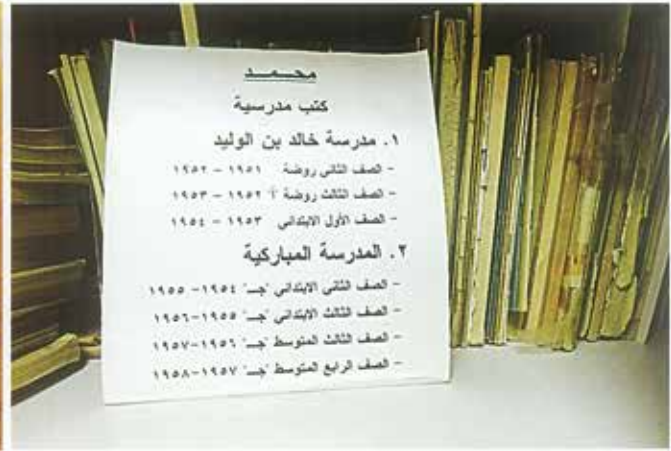 محـــمـــد
كتب مدرسية
١. مدرسة خالد بن الوليد
- الصف الثاني روضة ١٩٥١ - ١٩٥٢
- الصف الثالث روضة "أ" ١٩٥٢ - ١٩٥٣
- الصف الأول الابتدائي ١٩٥٣ - ١٩٥٤
٢. المدرسة المباركية
- الصف الثاني الابتدائي "جـ" ١٩٥٤- ١٩٥٥
- الصف الثالث الابتدائي "جـ" ١٩٥٥-١٩٥٦
- الصف الثالث المتوسط "جـ" ١٩٥٦-١٩٥٧
- الصف الرابع المتوسط "جـ" ١٩٥٧-١٩٥٨